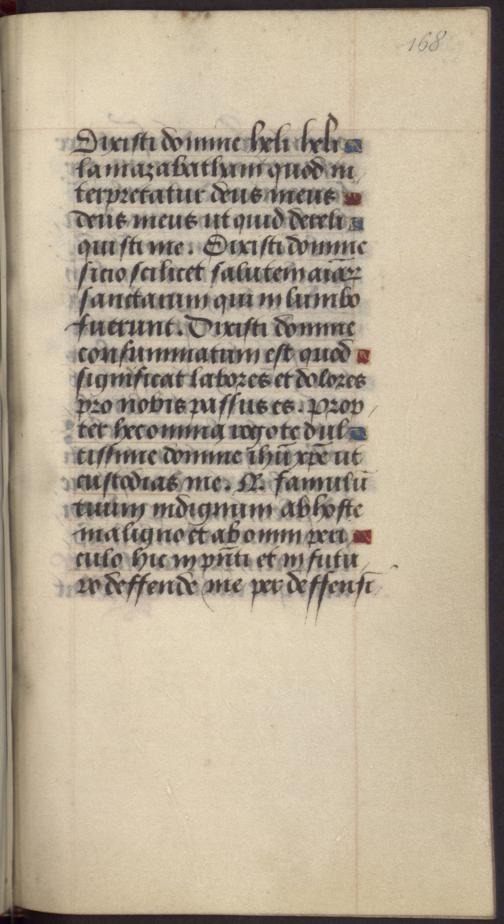 168
Dixisti domine heli heli
lamazabathani quod in
terpretatur deus meus
deus meus ut quid dereli
quisti me. Dixisti domine
sicio scilicet salutem aīaꝝ
sanctarum qui in limbo
fuerunt. Dixisti domine
consummatum est quod
significat labores et dolores
pro nobis passus es. prop
ter hec omnia rogo te dul
cissime domine ihū xpē ut
custodias me. N. famulū
tuum indignum ab hoste
maligno et ab omni peri
culo hic in pn̄ti et in futu
ro deffende me per deffensi